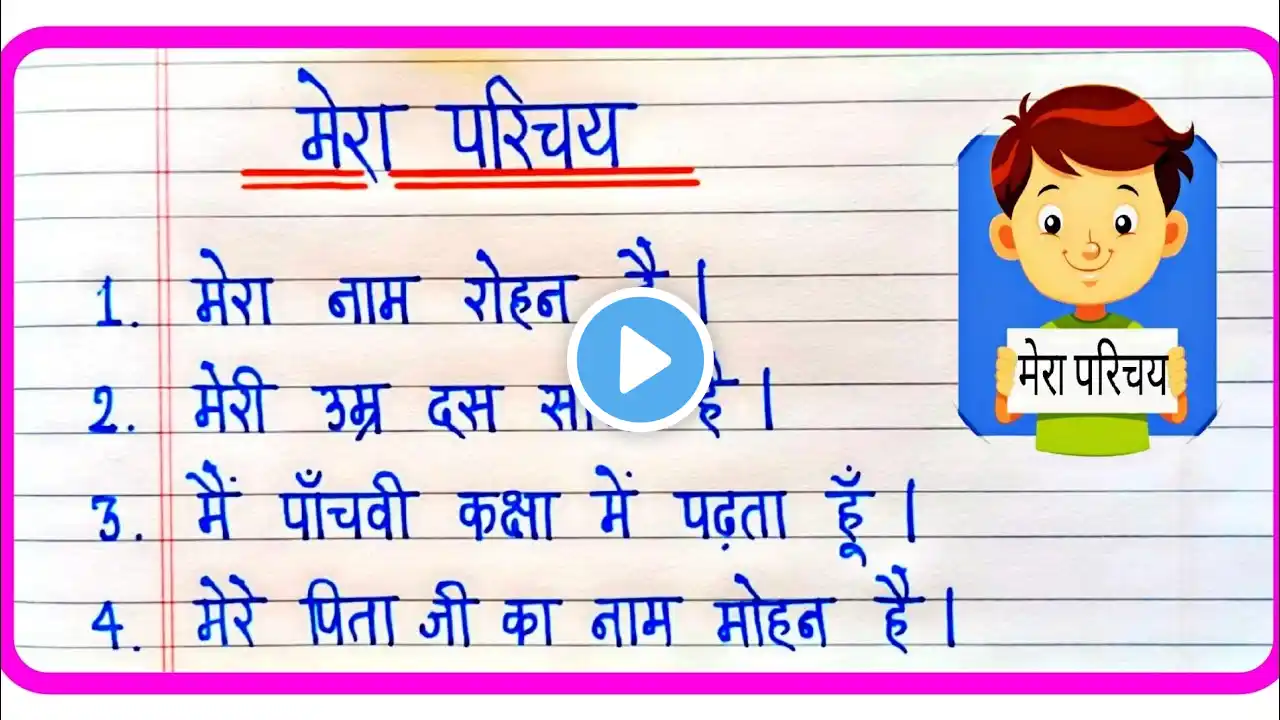 मेरा परिचय
1. मेरा नाम रोहन है।
2. मेरी उम्र दस है।
3. मैं पाँचवी कक्षा में पढ़ता हूँ।
4. मेरे पिता जी का नाम मोहन है।
मेरा परिचय